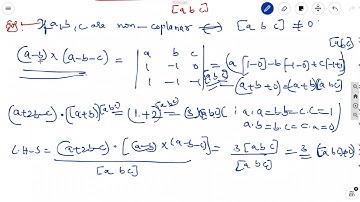 [a b c]
If a, b, c are non-coplanar ⟺ [a b c] ≠ 0
(a-b) × (a-b-c) = | a b c | = a[1-0] - b[-1-0] + c[-1+1]
| 1 -1 0 |
| 1 -1 -1 | [a b c] (a+b+0) = (a+b)[a b c]
(a+2b-c)·[a+b][a b c] = (1+2)[a b c] = 3[a b c] (∵ a·a = b·b = c·c = 1
a·b = b·c = c·a = 0)
L.H.S = (a+2b-c)·[(a-b)×(a-b-c)] = 3[a b c] = 3
[a b c] [a b c]